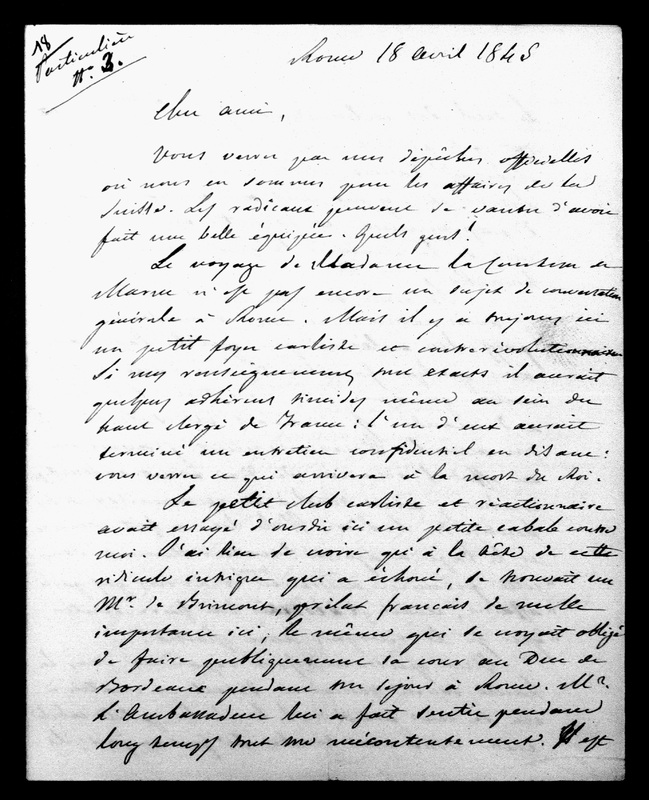 18
Particulière
No. 3.
Rome 18 avril 1845
Cher ami,
Vous verrez par mes dépêches officielles
où nous en sommes pour les affaires de la
Suisse. Les radicaux peuvent se vanter d'avoir
fait une belle équipée. Quels gens!
Le voyage de Madame la Comtesse de
Marne n'est pas encore un sujet de conversation
générale à Rome. Mais il y a toujours ici
un petit foyer carliste et contrerévolutionnaire
Si mes renseignements sont exacts il aurait
quelques adhérens timides même au sein du
haut clergé de France: l'un d'eux aurait
terminé un entretien confidentiel en disant:
vous verrez ce qui arrivera à la mort du Roi.
Le petit club carliste et réactionnaire
avait essayé d'ourdir ici une petite cabale contre
moi. J'ai lieu de croire qui à la tête de cette
ridicule intrigue qui a échoué, se trouvait un
Mr. de Brimont, prélat français de nulle
importance ici; le même qui se croyait obligé
de faire publiquement sa cour au Duc de
Bordeaux pendant son séjour à Rome. Mr.
l'Ambassadeur lui a fait sentir pendant
long temps tout son mécontentement. Il est